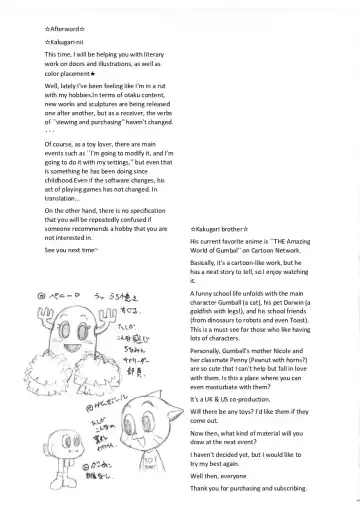 ☆Afterword☆
☆Kakugari-nii
This time, I will be helping you with literary
work on doors and illustrations, as well as
color placement★
Well, lately I've been feeling like I'm in a rut
with my hobbies.In terms of otaku content,
new works and sculptures are being released
one after another, but as a receiver, the verbs
of ``viewing and purchasing'' haven't changed.
・・・
Of course, as a toy lover, there are main
events such as ``I'm going to modify it, and I'm
going to do it with my settings,'' but even that
is something he has been doing since
childhood.Even if the software changes, his
act of playing games has not changed. In
translation...
On the other hand, there is no specification
that you will be repeatedly confused if
someone recommends a hobby that you are
not interested in.
See you next time~
☆Kakugari brother☆
His current favorite anime is ``THE Amazing
World of Gumball'' on Cartoon Network.
Basically, it's a cartoon-like work, but he
has a neat story to tell, so I enjoy watching
it.
A funny school life unfolds with the main
character Gumball (a cat), his pet Darwin (a
goldfish with legs!), and his school friends
(from dinosaurs to robots and even Toast).
This is a must-see for those who like having
lots of characters.
Personally, Gumball's mother Nicole and
her classmate Penny (Peanut with horns?)
are so cute that I can't help but fall in love
with them. Is this a place where you can
even masturbate with them?
It's a UK & US co-production.
Will there be any toys? I'd like them if they
come out.
Now then, what kind of material will you
draw at the next event?
I haven't decided yet, but I would like to
try my best again.
Well then, everyone
Thank you for purchasing and subscribing.
ペニーロ
すぎる。
たしか
こんな感じ
チアリーダー
部員。